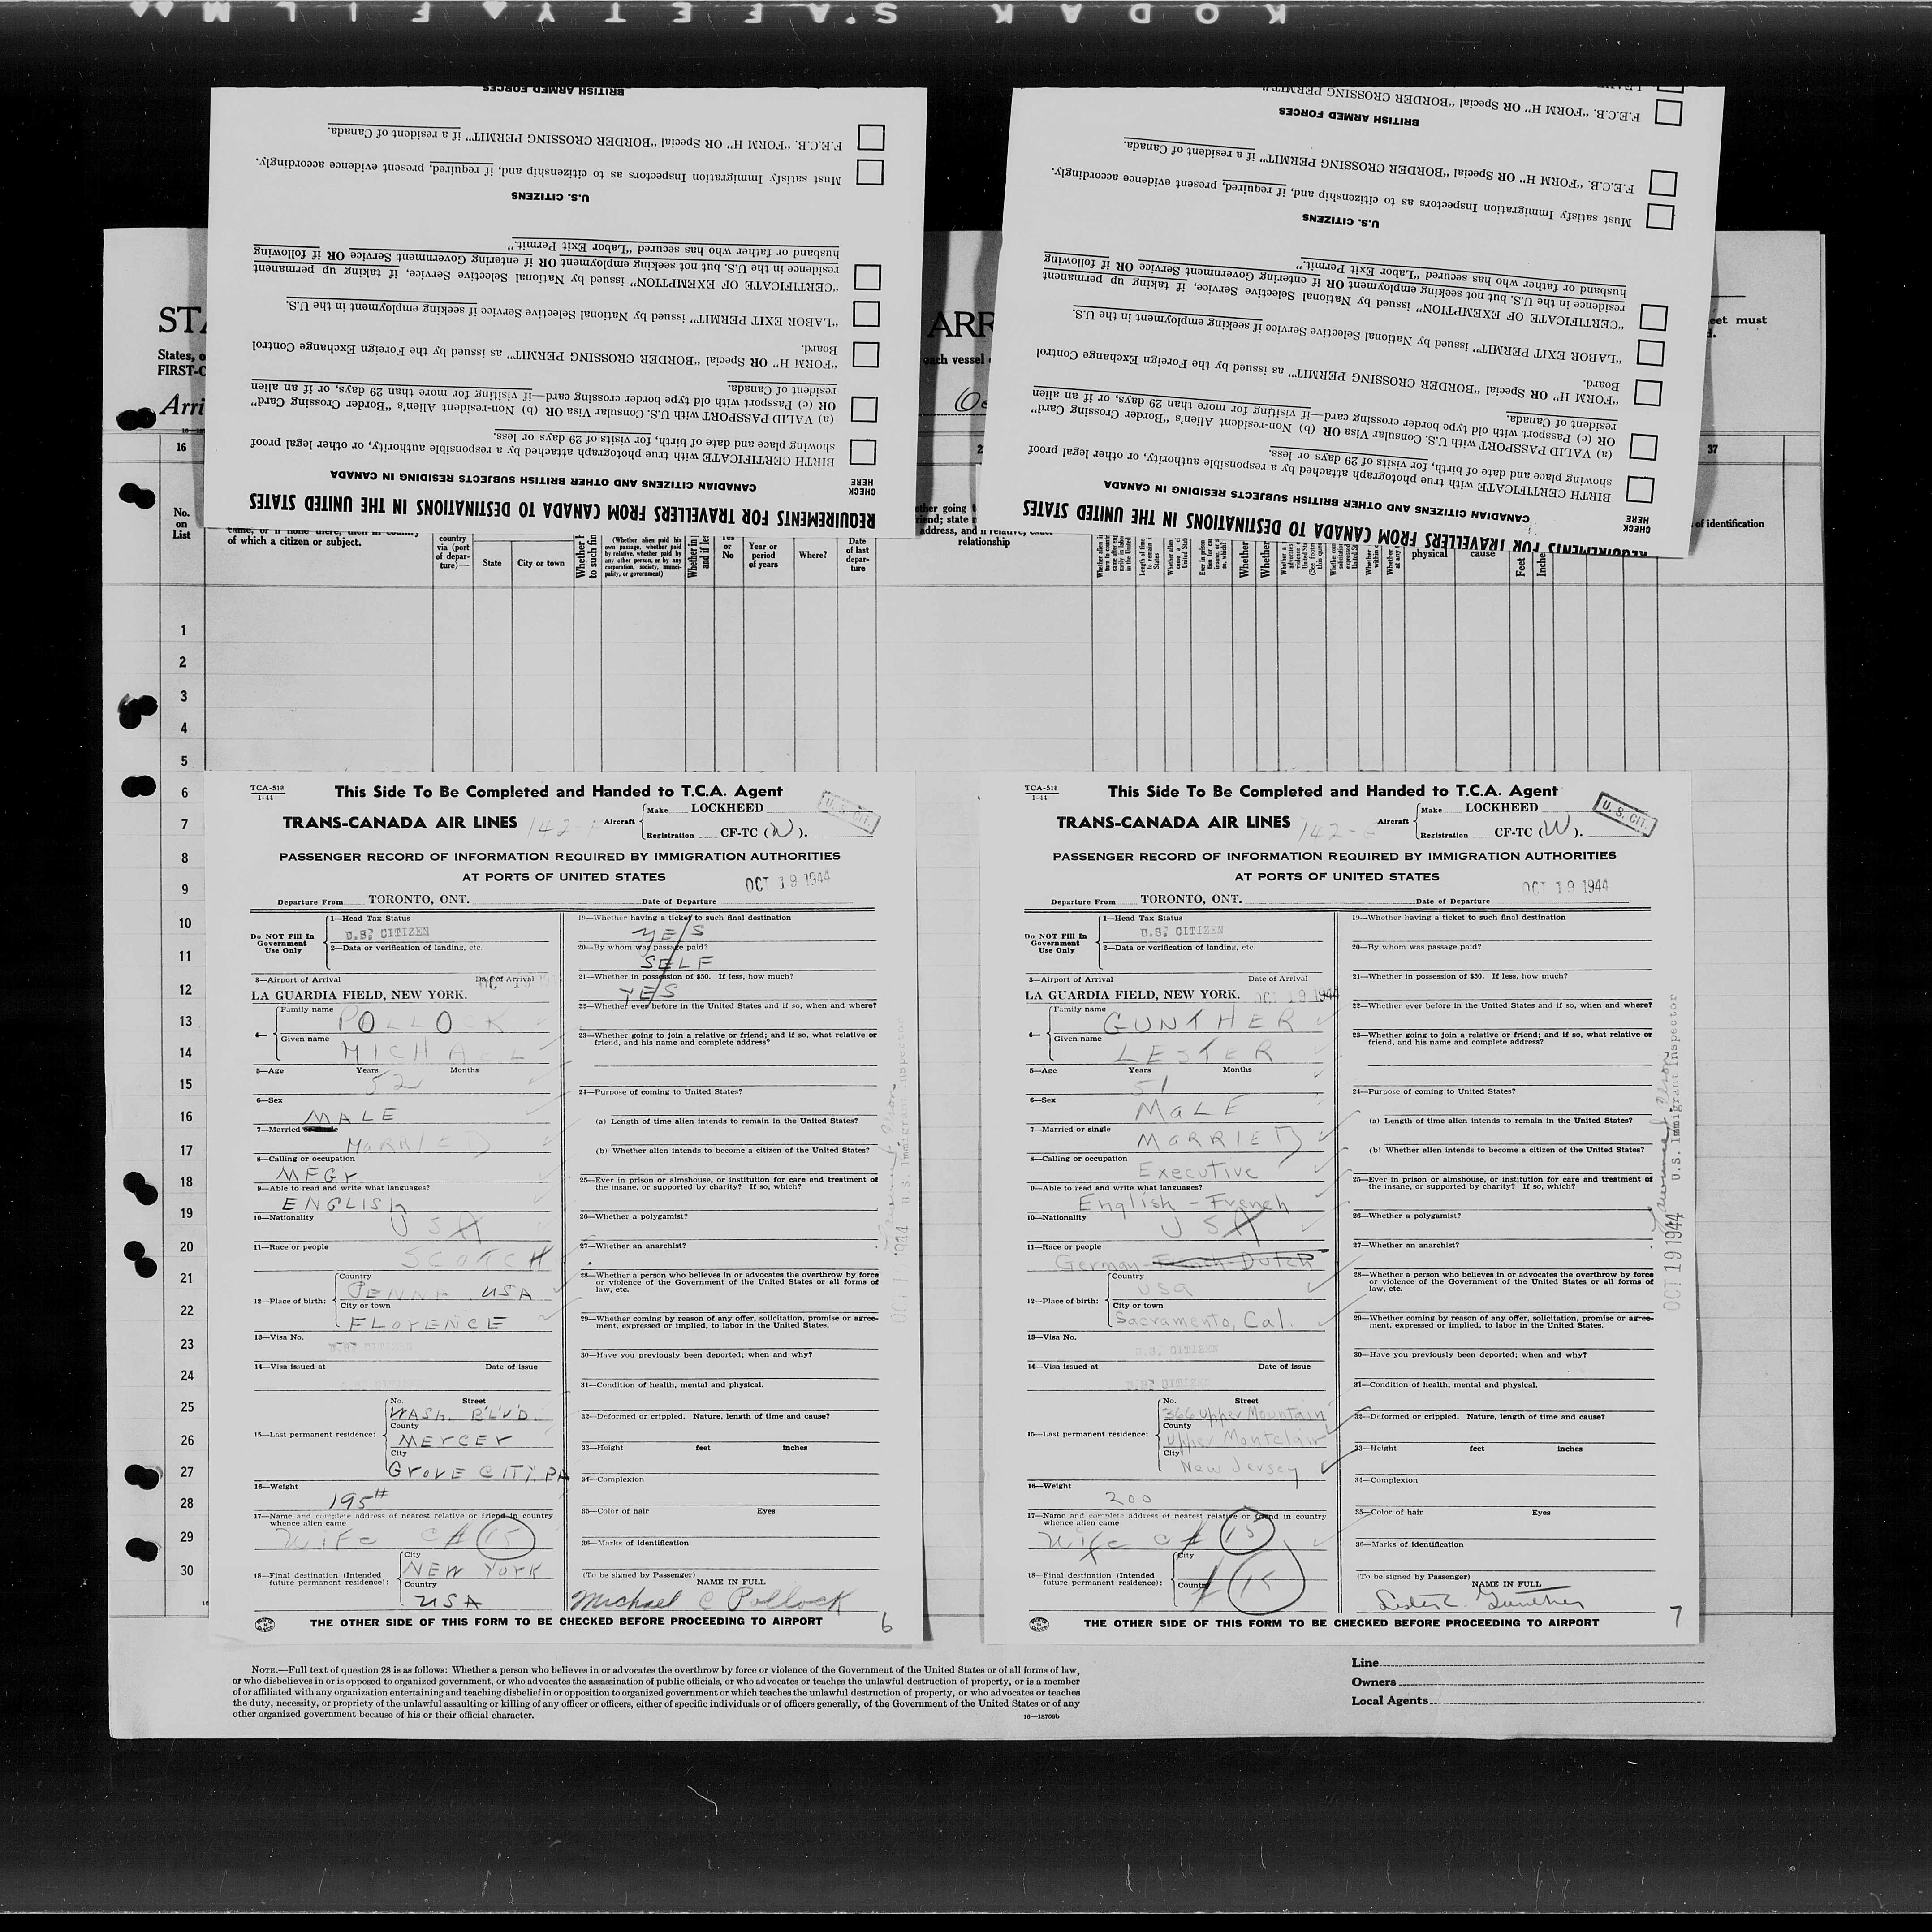 KODAK SAFETY FILM
BRITISH ARMED FORCES
F.E.C.B. "FORM H" OR Special "BORDER CROSSING PERMIT" if a resident of Canada.
Must satisfy Immigration Inspectors as to citizenship and, if required, present evidence accordingly.
U.S. CITIZENS
husband or father who has secured "Labor Exit Permit."
residence in the U.S. but not seeking employment OR if entering Government Service OR if following
"CERTIFICATE OF EXEMPTION" issued by National Selective Service, if taking up permanent
"LABOR EXIT PERMIT" issued by National Selective Service if seeking employment in the U.S.
Board.
"FORM H" OR Special "BORDER CROSSING PERMIT" as issued by the Foreign Exchange Control
resident of Canada.
OR (c) Passport with old type border crossing card—if visiting for more than 29 days, or if an alien
(a) VALID PASSPORT with U.S. Consular Visa OR (b) Non-resident Alien's "Border Crossing Card"
showing place and date of birth, for visits of 29 days or less.
BIRTH CERTIFICATE with true photograph attached by a responsible authority, or other legal proof
CANADIAN CITIZENS AND OTHER BRITISH SUBJECTS RESIDING IN CANADA
CHECK HERE
REQUIREMENTS FOR TRAVELLERS FROM CANADA TO DESTINATIONS IN THE UNITED STATES
F.E.C.B. "FORM H" OR Special "BORDER CROSSING PERMIT"
BRITISH ARMED FORCES
F.E.C.B. "FORM H" OR Special "BORDER CROSSING PERMIT" if a resident of Canada.
Must satisfy Immigration Inspectors as to citizenship and, if required, present evidence accordingly.
U.S. CITIZENS
husband or father who has secured "Labor Exit Permit."
residence in the U.S. but not seeking employment OR if entering Government Service OR if following
"CERTIFICATE OF EXEMPTION" issued by National Selective Service, if taking up permanent
"LABOR EXIT PERMIT" issued by National Selective Service if seeking employment in the U.S.
Board.
"FORM H" OR Special "BORDER CROSSING PERMIT" as issued by the Foreign Exchange Control
resident of Canada.
OR (c) Passport with old type border crossing card—if visiting for more than 29 days, or if an alien
(a) VALID PASSPORT with U.S. Consular Visa OR (b) Non-resident Alien's "Border Crossing Card"
showing place and date of birth, for visits of 29 days or less.
BIRTH CERTIFICATE with true photograph attached by a responsible authority, or other legal proof
CANADIAN CITIZENS AND OTHER BRITISH SUBJECTS RESIDING IN CANADA
CHECK HERE
REQUIREMENTS FOR TRAVELLERS FROM CANADA TO DESTINATIONS IN THE UNITED STATES
STA
ARR
eet must
States, o
each vessel
FIRST-C
Arri
16
37
No. on List
of identification
of which a citizen or subject.
country via (port of departure)—
State
City or town
(Whether alien paid his own passage, whether paid by relative, whether paid by any other person, or by any corporation, society, municipality, or government)
Yes or No
Year or period of years
Where?
Date of last departure
relationship
physical
cause
Feet
Inche
1
2
3
4
5
6
7
8
9
10
11
12
13
14
15
16
17
18
19
20
21
22
23
24
25
26
27
28
29
30
TCA-518
1-44
This Side To Be Completed and Handed to T.C.A. Agent
U. S. CIT.
TRANS-CANADA AIR LINES 142-
Aircraft Make LOCKHEED
Registration CF-TC (W).
PASSENGER RECORD OF INFORMATION REQUIRED BY IMMIGRATION AUTHORITIES
AT PORTS OF UNITED STATES
OCT 19 1944
Departure From TORONTO, ONT. Date of Departure
Do NOT Fill In Government Use Only
1—Head Tax Status
U.S. CITIZEN
2—Data or verification of landing, etc.
3—Airport of Arrival Date of Arrival
LA GUARDIA FIELD, NEW YORK.
4— Family name POLLOCK
Given name MICHAEL
5—Age Years Months
52
6—Sex
MALE
7—Married
MARRIED
8—Calling or occupation
MFGr
9—Able to read and write what languages?
ENGLISh
10—Nationality
USA
11—Race or people
SCOTCH
12—Place of birth: Country
PENNA. USA
City or town
FLOrENCE
13—Visa No.
U.S. CITIZEN
14—Visa issued at Date of issue
U.S. CITIZEN
15—Last permanent residence: No. Street
WASh. BLVD.
County
MERCEr
City
GrovE CITY, PA
16—Weight
195#
17—Name and complete address of nearest relative or friend in country whence alien came
Wife C# 15
18—Final destination (Intended future permanent residence): City
NEW YORK
Country
USA
19—Whether having a ticket to such final destination
YES
20—By whom was passage paid?
SELF
21—Whether in possession of $50. If less, how much?
YES
22—Whether ever before in the United States and if so, when and where?
23—Whether going to join a relative or friend; and if so, what relative or friend, and his name and complete address?
24—Purpose of coming to United States?
(a) Length of time alien intends to remain in the United States?
(b) Whether alien intends to become a citizen of the United States?
25—Ever in prison or almshouse, or institution for care and treatment of the insane, or supported by charity? If so, which?
26—Whether a polygamist?
27—Whether an anarchist?
28—Whether a person who believes in or advocates the overthrow by force or violence of the Government of the United States or all forms of law, etc.
29—Whether coming by reason of any offer, solicitation, promise or agreement, expressed or implied, to labor in the United States.
30—Have you previously been deported; when and why?
31—Condition of health, mental and physical.
32—Deformed or crippled. Nature, length of time and cause?
33—Height feet inches
34—Complexion
35—Color of hair Eyes
36—Marks of identification
(To be signed by Passenger)
NAME IN FULL
Michael C Pollock
U.S. Immigrant Inspector
THE OTHER SIDE OF THIS FORM TO BE CHECKED BEFORE PROCEEDING TO AIRPORT
6
TCA-518
1-44
This Side To Be Completed and Handed to T.C.A. Agent
U. S. CIT.
TRANS-CANADA AIR LINES 142-
Aircraft Make LOCKHEED
Registration CF-TC (W).
PASSENGER RECORD OF INFORMATION REQUIRED BY IMMIGRATION AUTHORITIES
AT PORTS OF UNITED STATES
OCT 19 1944
Departure From TORONTO, ONT. Date of Departure
Do NOT Fill In Government Use Only
1—Head Tax Status
U.S. CITIZEN
2—Data or verification of landing, etc.
3—Airport of Arrival Date of Arrival
LA GUARDIA FIELD, NEW YORK. OCT 19 1944
4— Family name GUNTHER
Given name LESTER
5—Age Years Months
51
6—Sex
MaLE
7—Married or single
MARRIED
8—Calling or occupation
Executive
9—Able to read and write what languages?
English - French
10—Nationality
USA
11—Race or people
German-
12—Place of birth: Country
USa
City or town
Sacramento, Cal.
13—Visa No.
U.S. CITIZEN
14—Visa issued at Date of issue
U.S. CITIZEN
15—Last permanent residence: No. Street
366 Upper Mountain
County
Upper Montclair
City
New Jersey
16—Weight
200
17—Name and complete address of nearest relative or friend in country whence alien came
Wife C# 15
18—Final destination (Intended future permanent residence): City
Country
15
19—Whether having a ticket to such final destination
20—By whom was passage paid?
21—Whether in possession of $50. If less, how much?
22—Whether ever before in the United States and if so, when and where?
23—Whether going to join a relative or friend; and if so, what relative or friend, and his name and complete address?
24—Purpose of coming to United States?
(a) Length of time alien intends to remain in the United States?
(b) Whether alien intends to become a citizen of the United States?
25—Ever in prison or almshouse, or institution for care and treatment of the insane, or supported by charity? If so, which?
26—Whether a polygamist?
27—Whether an anarchist?
28—Whether a person who believes in or advocates the overthrow by force or violence of the Government of the United States or all forms of law, etc.
29—Whether coming by reason of any offer, solicitation, promise or agreement, expressed or implied, to labor in the United States.
30—Have you previously been deported; when and why?
31—Condition of health, mental and physical.
32—Deformed or crippled. Nature, length of time and cause?
33—Height feet inches
34—Complexion
35—Color of hair Eyes
36—Marks of identification
(To be signed by Passenger)
NAME IN FULL
Lester L. Gunther
OCT 19 1944 U.S. Immigrant Inspector
THE OTHER SIDE OF THIS FORM TO BE CHECKED BEFORE PROCEEDING TO AIRPORT
7
NOTE.—Full text of question 28 is as follows: Whether a person who believes in or advocates the overthrow by force or violence of the Government of the United States or of all forms of law,
or who disbelieves in or is opposed to organized government, or who advocates the assassination of public officials, or who advocates or teaches the unlawful destruction of property, or is a member
of or affiliated with any organization entertaining and teaching disbelief in or opposition to organized government or which teaches the unlawful destruction of property, or who advocates or teaches
the duty, necessity, or propriety of the unlawful assaulting or killing of any officer or officers, either of specific individuals or of officers generally, of the Government of the United States or of any
other organized government because of his or their official character.
16—18709b
Line
Owners
Local Agents